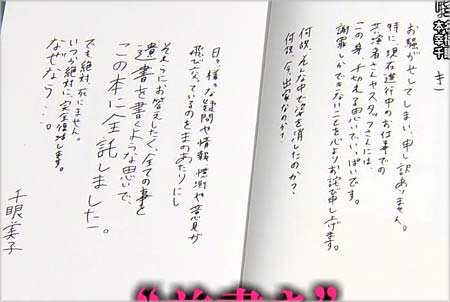 お騒がせしてしまい、申し訳ありません。
特に、現在進行中のお仕事での
共演者さんやスタッフさんには、
この身、千切れる思いでいっぱいです。
謝罪しかできないことを心よりお詫び申し上げます。
何故、そんな中で姿を消したのか?
何故、今、出家なのか?
日々、様々な疑問や情報、憶測や意見が
飛び交っているのを目のあたりにし
それらにお答えしたく、全ての事を
遺書を書くような思いで、
この本に全託しました。
でも、絶対、死にません。
いつか絶対に、完全復活します。
なぜなら…。
千眼美子